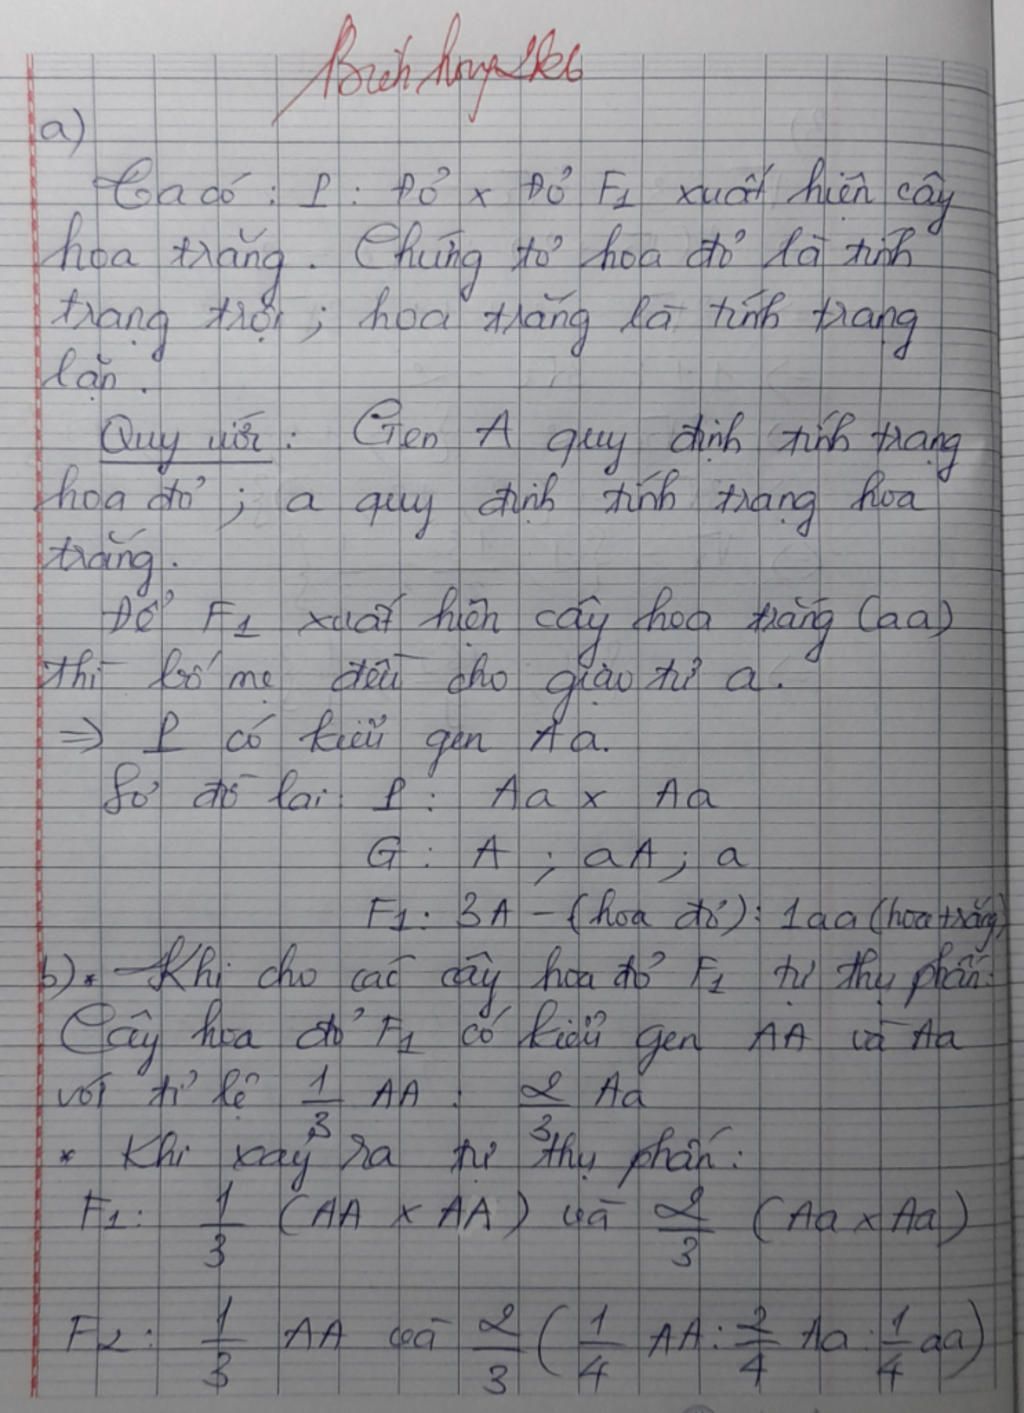 Bích hợp 2k6
a)
Ta có : P : Đỏ x Đỏ F1 xuất hiện cây
hoa trắng. Chứng tỏ hoa đỏ là tính
trạng trội ; hoa trắng là tính trạng
lặn.
Quy ước : Gen A quy định tính trạng
hoa đỏ ; a quy định tính trạng hoa
trắng.
Để F1 xuất hiện cây hoa trắng (aa)
thì bố mẹ đều cho giao tử a.
⇒ P có kiểu gen Aa.
Sơ đồ lai P : Aa x Aa
G : A ; aA ; a
F1 : 3A - (hoa đỏ) : 1aa (hoa trắng)
b) * Khi cho các cây hoa đỏ F1 tự thụ phấn:
Cây hoa đỏ F1 có kiểu gen AA và Aa
với tỉ lệ 1/3 AA : 2/3 Aa
* Khi xảy ra tự thụ phấn :
F1 : 1/3 (AA x AA) và 2/3 (Aa x Aa)
F2 : 1/3 AA và 2/3 (1/4 AA : 2/4 Aa : 1/4 aa)